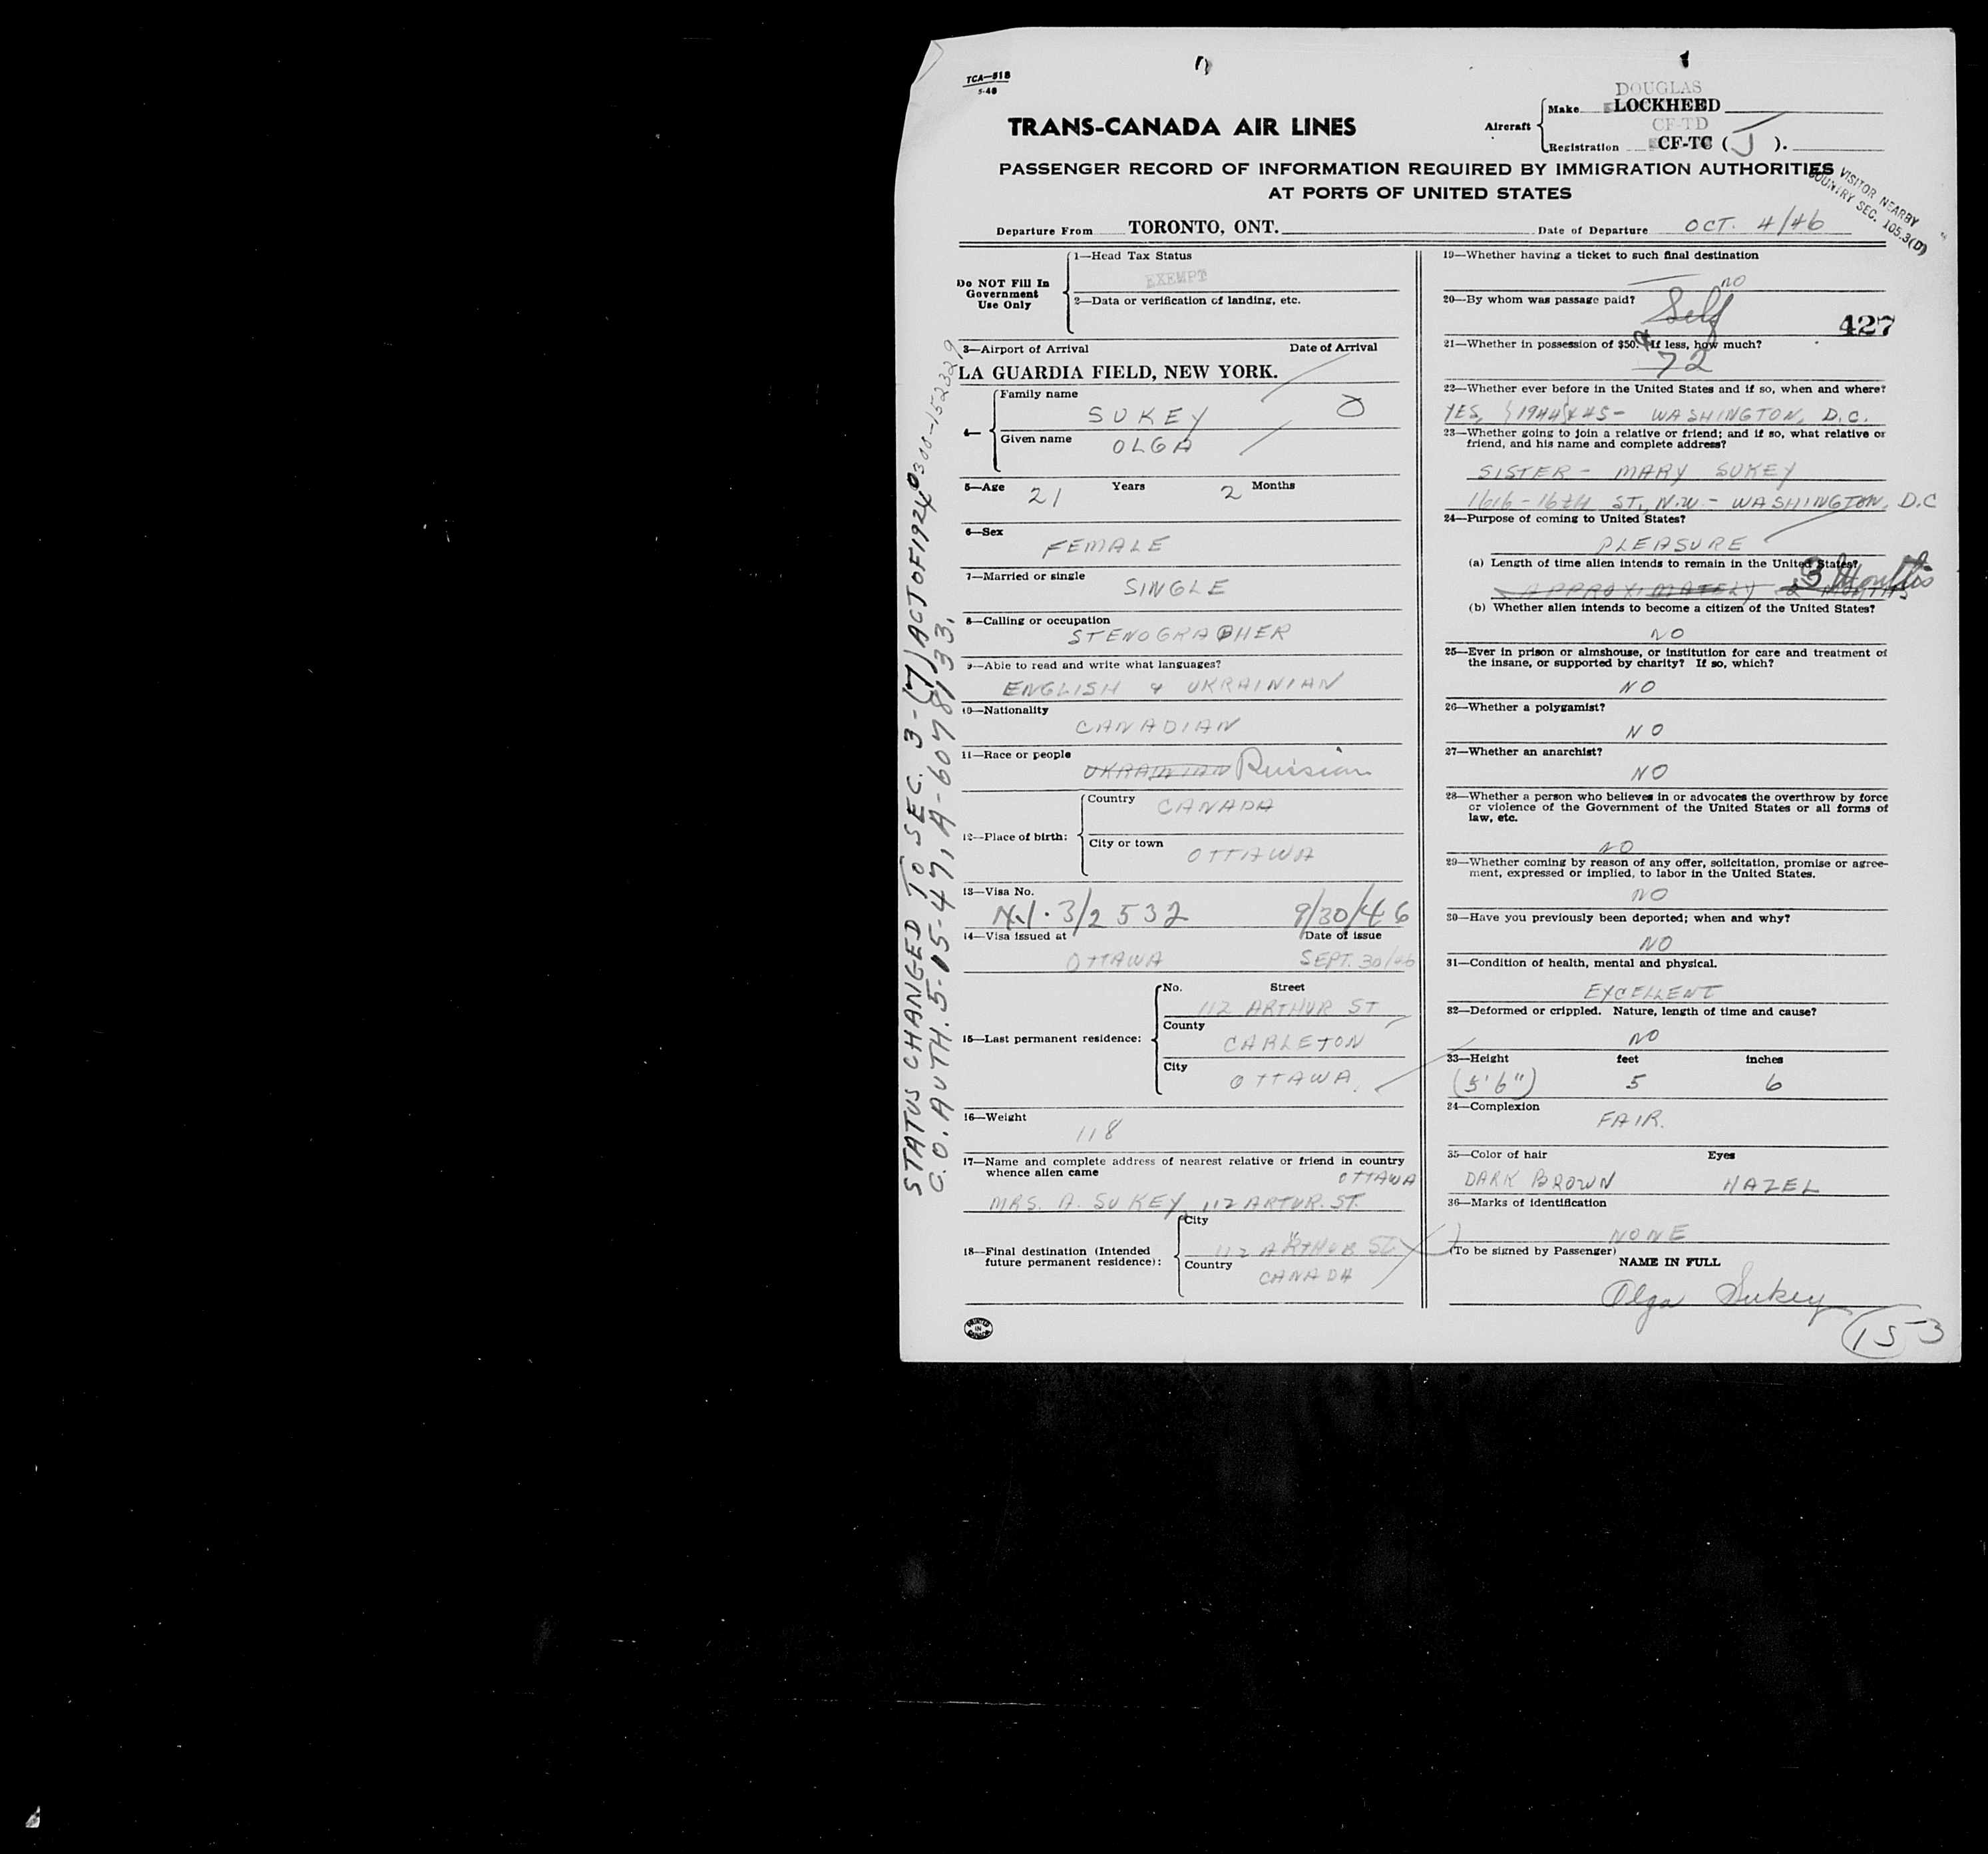 TCA—518
5-46
DOUGLAS
Make LOCKHEED
TRANS-CANADA AIR LINES
Aircraft
CF-TD
Registration CF-TC ( J ).
PASSENGER RECORD OF INFORMATION REQUIRED BY IMMIGRATION AUTHORITIES
AT PORTS OF UNITED STATES
VISITOR NEARBY
COUNTRY SEC. 105.3(D)
Departure From TORONTO, ONT. Date of Departure OCT. 4/46
Do NOT Fill In
Government
Use Only
1—Head Tax Status
EXEMPT
2—Data or verification of landing, etc.
3—Airport of Arrival Date of Arrival
LA GUARDIA FIELD, NEW YORK.
4—
Family name
SUKEY
Given name
OLGA
5—Age 21 Years 2 Months
6—Sex
FEMALE
7—Married or single
SINGLE
8—Calling or occupation
STENOGRAPHER
9—Able to read and write what languages?
ENGLISH & UKRAINIAN
10—Nationality
CANADIAN
11—Race or people
UKRAINIAN Russian
12—Place of birth:
Country
CANADA
City or town
OTTAWA
13—Visa No.
N.I. 3/2532 9/30/46
14—Visa issued at Date of issue
OTTAWA SEPT. 30/46
15—Last permanent residence:
No. Street
112 ARTHUR ST
County
CARLETON
City
OTTAWA.
16—Weight
118
17—Name and complete address of nearest relative or friend in country
whence alien came
OTTAWA
MRS. A. SUKEY, 112 ARTUR. ST.
18—Final destination (Intended
future permanent residence):
City
112 ARTHUR ST
Country
CANADA
PRINTED
IN
CANADA
19—Whether having a ticket to such final destination
NO
20—By whom was passage paid?
Self
427
21—Whether in possession of $50. If less, how much?
72
22—Whether ever before in the United States and if so, when and where?
YES, 1944 & 45 - WASHINGTON, D.C.
23—Whether going to join a relative or friend; and if so, what relative or
friend, and his name and complete address?
SISTER - MARY SUKEY
1616 - 16th ST., N.W - WASHINGTON, D.C
24—Purpose of coming to United States?
PLEASURE
(a) Length of time alien intends to remain in the United States?
APPROXIMATELY 2 MONTHS 3 Months
(b) Whether alien intends to become a citizen of the United States?
NO
25—Ever in prison or almshouse, or institution for care and treatment of
the insane, or supported by charity? If so, which?
NO
26—Whether a polygamist?
NO
27—Whether an anarchist?
NO
28—Whether a person who believes in or advocates the overthrow by force
or violence of the Government of the United States or all forms of
law, etc.
NO
29—Whether coming by reason of any offer, solicitation, promise or agree-
ment, expressed or implied, to labor in the United States.
NO
30—Have you previously been deported; when and why?
NO
31—Condition of health, mental and physical.
EXCELLENT
32—Deformed or crippled. Nature, length of time and cause?
NO
33—Height feet inches
(5'6") 5 6
34—Complexion
FAIR.
35—Color of hair Eyes
DARK BROWN HAZEL
36—Marks of identification
NONE
(To be signed by Passenger)
NAME IN FULL
Olga Sukey
153
STATUS CHANGED TO SEC. 3-(7) ACT OF 1924
C.O. AUTH. 5-15-47, A-6078133.
0300-152329